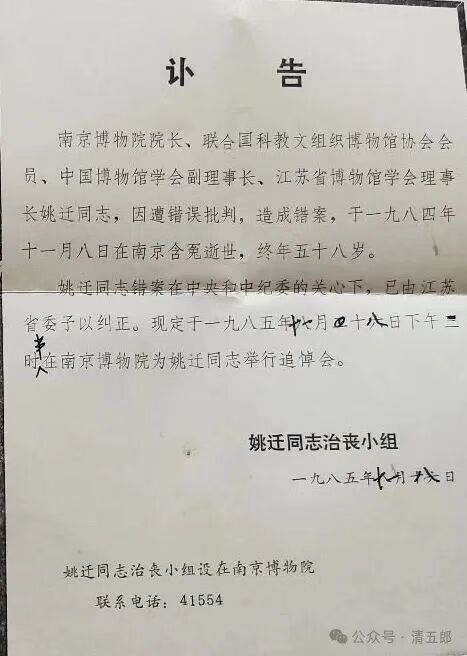 讣 告
南京博物院院长、联合国科教文组织博物馆协会会
员、中国博物馆学会副理事长、江苏省博物馆学会理事
长姚迁同志，因遭错误批判，造成错案，于一九八四年
十一月八日在南京含冤逝世，终年五十八岁。
姚迁同志错案在中央和中纪委的关心下，已由江苏
省委予以纠正。现定于一九八五年 月 十八日下午三
时半在南京博物院为姚迁同志举行追悼会。
姚迁同志治丧小组
一九八五年 月 日
姚迁同志治丧小组设在南京博物院
联系电话：41554
公众号·清五郎